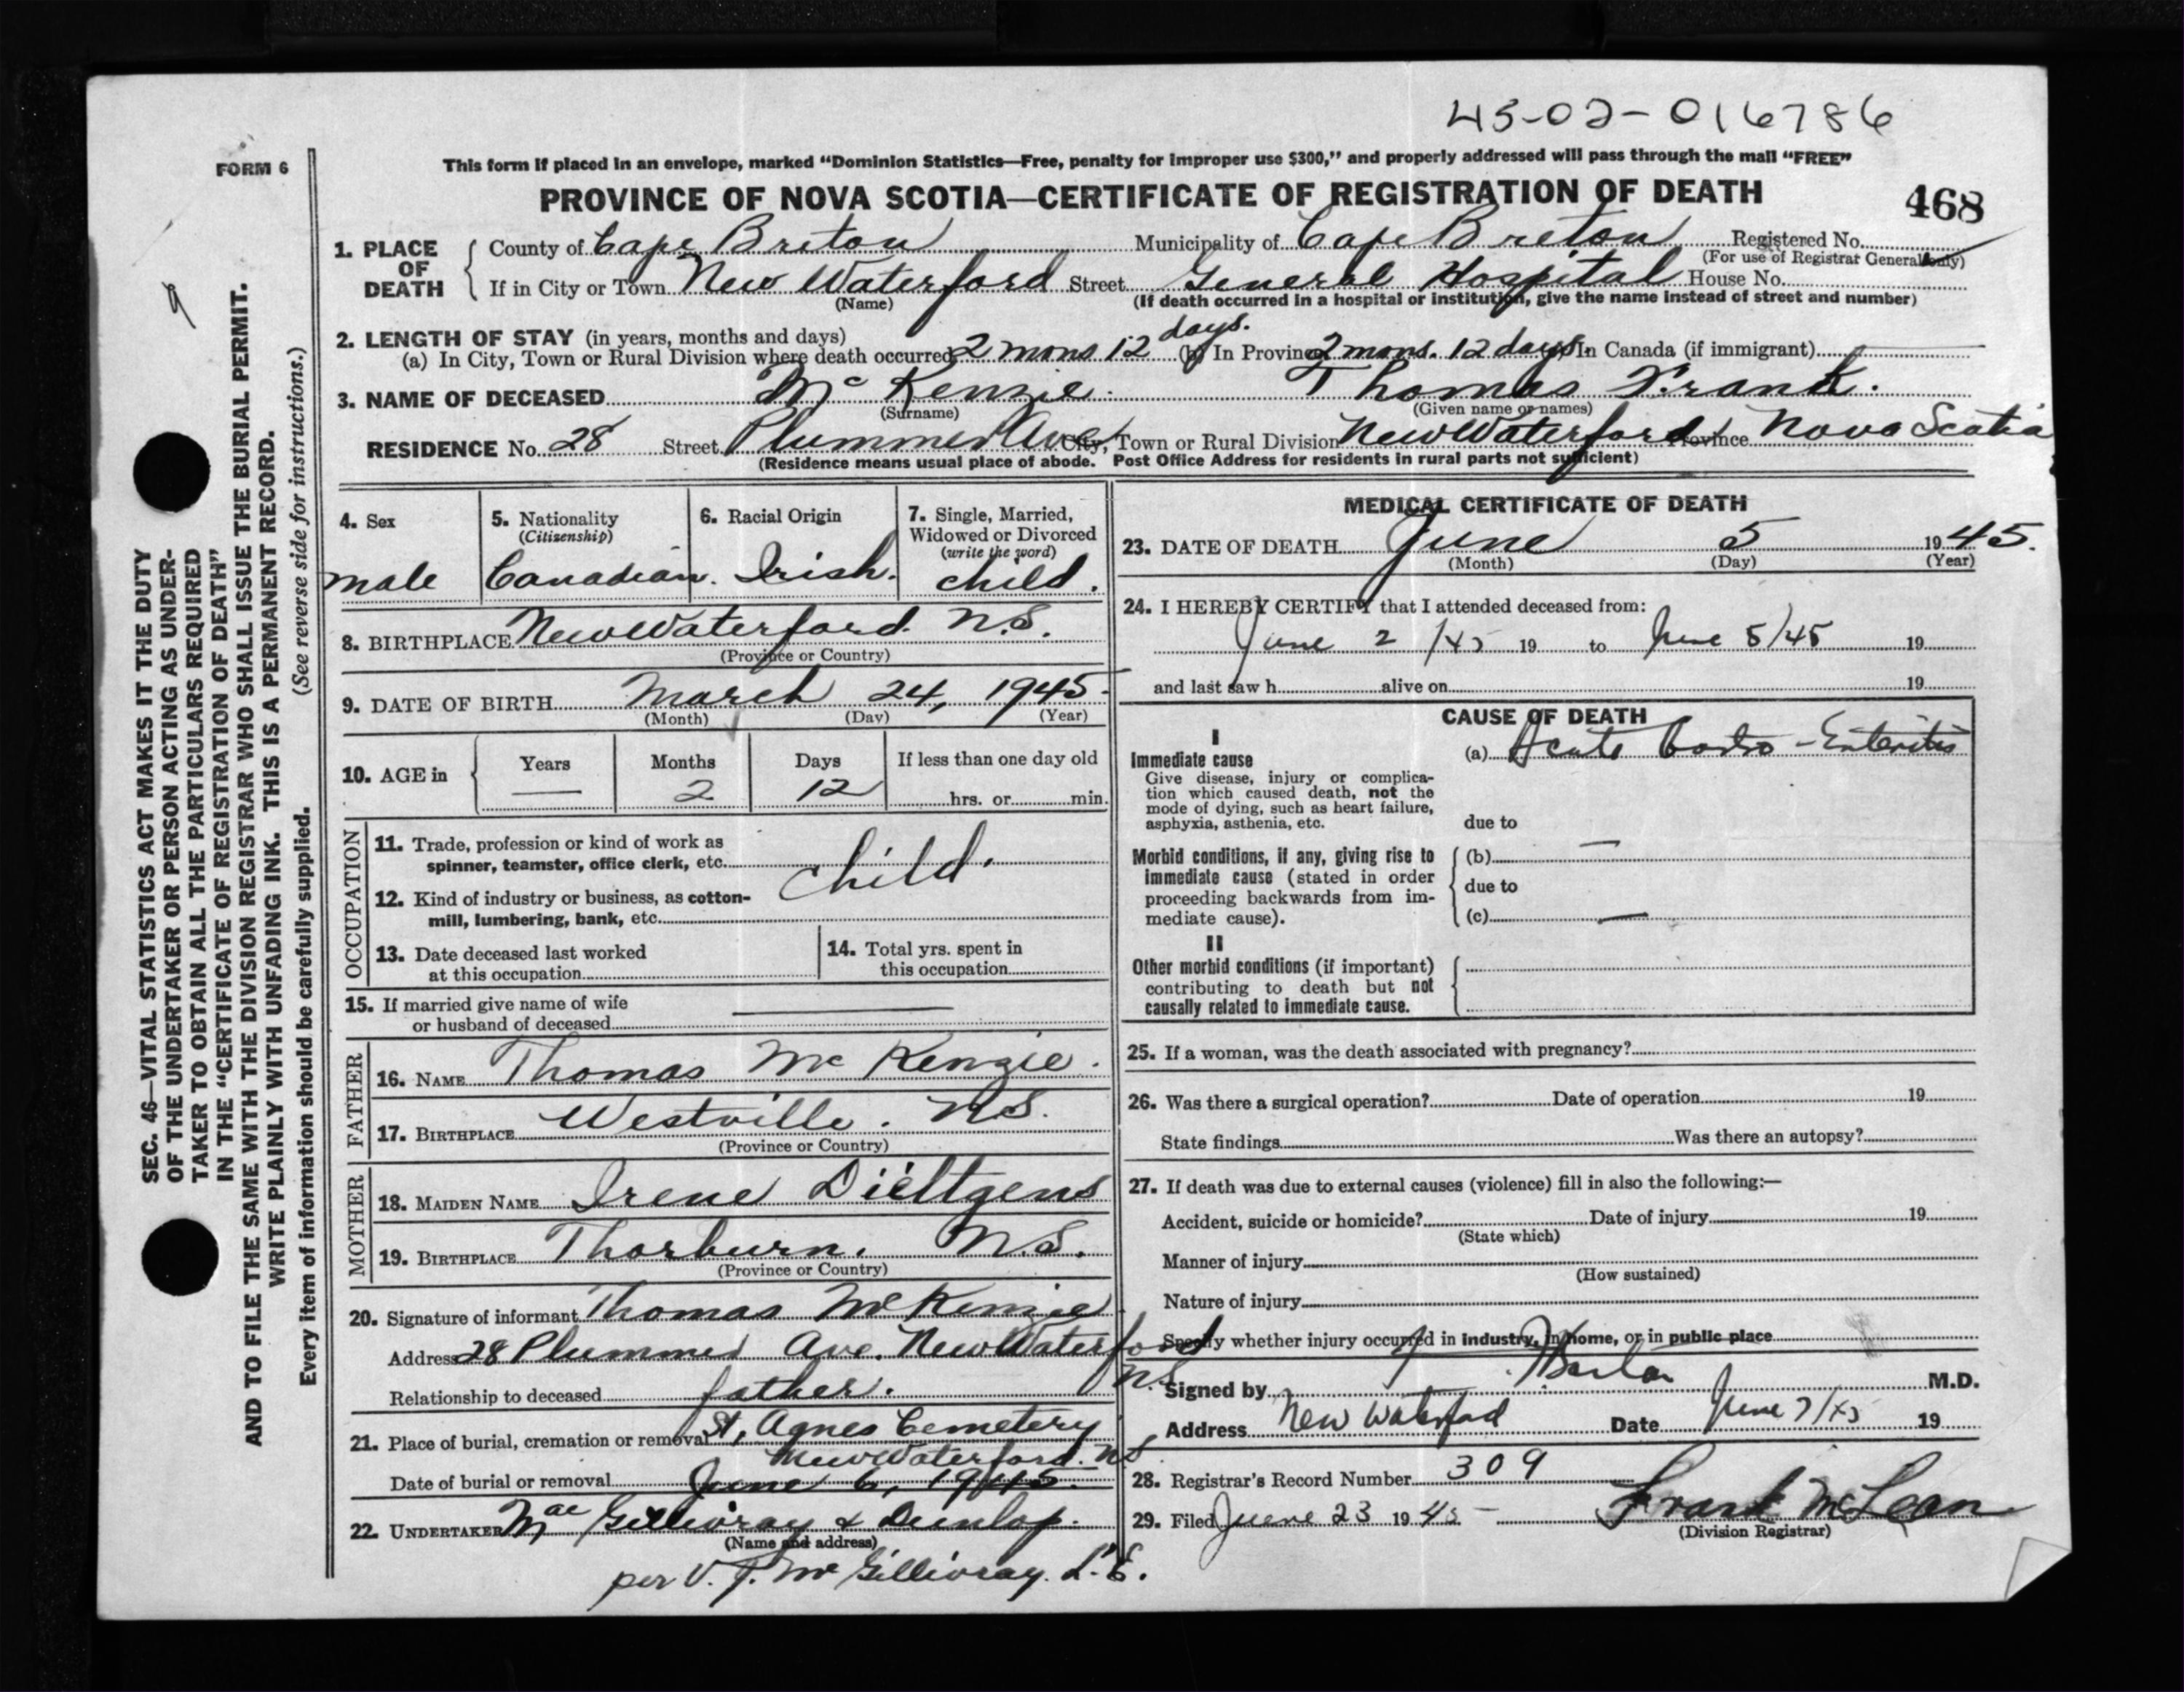 45-02-016786
FORM 6
This form if placed in an envelope, marked "Dominion Statistics—Free, penalty for improper use $300," and properly addressed will pass through the mail "FREE"
PROVINCE OF NOVA SCOTIA—CERTIFICATE OF REGISTRATION OF DEATH
468
1. PLACE OF DEATH { County of Cape Breton Municipality of Cape Breton Registered No.
(For use of Registrar General only)
If in City or Town New Waterford Street General Hospital House No.
(Name) (If death occurred in a hospital or institution, give the name instead of street and number)
2. LENGTH OF STAY (in years, months and days)
(a) In City, Town or Rural Division where death occurred 2 mons 12 days. (b) In Province 2 mons. 12 days In Canada (if immigrant)
3. NAME OF DECEASED Mc Kenzie. Thomas Frank.
(Surname) (Given name or names)
RESIDENCE No. 28 Street Plummer Ave City, Town or Rural Division New Waterford Province Nova Scotia
(Residence means usual place of abode. Post Office Address for residents in rural parts not sufficient)
4. Sex
male
5. Nationality
(Citizenship)
Canadian.
6. Racial Origin
Irish.
7. Single, Married,
Widowed or Divorced
(write the word)
child.
8. BIRTHPLACE New Waterford. N.S.
(Province or Country)
9. DATE OF BIRTH March 24, 1945.
(Month) (Day) (Year)
10. AGE in { Years Months Days If less than one day old
— 2 12 hrs. or min.
OCCUPATION
11. Trade, profession or kind of work as
spinner, teamster, office clerk, etc.
child.
12. Kind of industry or business, as cotton-
mill, lumbering, bank, etc.
13. Date deceased last worked
at this occupation
14. Total yrs. spent in
this occupation
15. If married give name of wife
or husband of deceased
FATHER
16. NAME Thomas Mc Kenzie.
17. BIRTHPLACE Westville. N.S.
(Province or Country)
MOTHER
18. MAIDEN NAME Irene Dieltgens
19. BIRTHPLACE Thorburn. N.S.
(Province or Country)
20. Signature of informant Thomas McKenzie
Address 28 Plummer Ave. New Waterford
N.S.
Relationship to deceased father.
21. Place of burial, cremation or removal St, Agnes Cemetery
New Waterford. N.S
Date of burial or removal June 6, 1945.
22. UNDERTAKER Mac Gillivray & Dunlop.
(Name and address)
per V. J. Mc Gillivray. L.E.
MEDICAL CERTIFICATE OF DEATH
23. DATE OF DEATH June 5 1945.
(Month) (Day) (Year)
24. I HEREBY CERTIFY that I attended deceased from:
June 2 /45 19 to June 5/45 19
and last saw h alive on 19
CAUSE OF DEATH
I
Immediate cause
Give disease, injury or complica-
tion which caused death, not the
mode of dying, such as heart failure,
asphyxia, asthenia, etc.
(a) Acute Gastro-Enteritis
due to
Morbid conditions, if any, giving rise to
immediate cause (stated in order
proceeding backwards from im-
mediate cause).
(b) —
due to
(c) —
II
Other morbid conditions (if important)
contributing to death but not
causally related to immediate cause.
25. If a woman, was the death associated with pregnancy?
26. Was there a surgical operation? Date of operation 19
State findings Was there an autopsy?
27. If death was due to external causes (violence) fill in also the following:—
Accident, suicide or homicide? Date of injury 19
(State which)
Manner of injury
(How sustained)
Nature of injury
Specify whether injury occurred in industry, in home, or in public place
Signed by M.D.
Address New Waterford Date June 7/45 19
28. Registrar's Record Number 309
29. Filed June 23 1945 Frank McLean
(Division Registrar)
SEC. 46—VITAL STATISTICS ACT MAKES IT THE DUTY
OF THE UNDERTAKER OR PERSON ACTING AS UNDER-
TAKER TO OBTAIN ALL THE PARTICULARS REQUIRED
IN THE "CERTIFICATE OF REGISTRATION OF DEATH"
AND TO FILE THE SAME WITH THE DIVISION REGISTRAR WHO SHALL ISSUE THE BURIAL PERMIT.
WRITE PLAINLY WITH UNFADING INK. THIS IS A PERMANENT RECORD.
Every item of information should be carefully supplied. (See reverse side for instructions.)